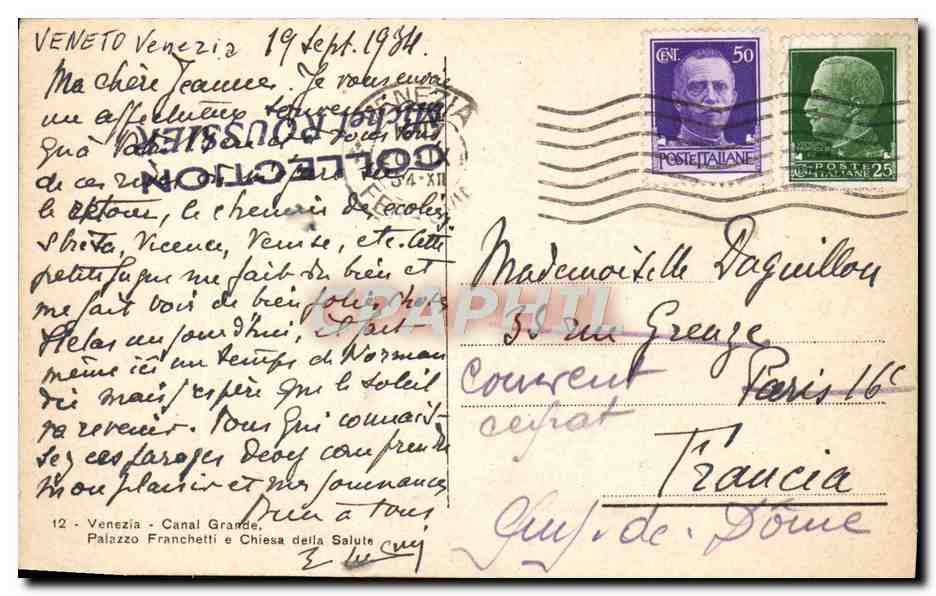 VENETO Venezia 19 Sept. 1934.
Ma chère Jeanne. Je vous envoie
un affectueux souvenir
qu'à
de ces
le retour, le chemin des écoliers
Vicence, Venise, etc. Cette
petite fugue me fait du bien et
me fait voir de bien jolies choses
Hélas aujourd'hui, il fait
même ici un temps de Norman
die mais j'espère que le soleil
va revenir. Vous qui connais-
sez ces parages devez comprendre
mon plaisir et mes jouissances
Bien à vous
COLLECTION
Michel ROUSSIEX
VENEZIA
CENT. 50
POSTE ITALIANE
POSTE
ITALIANE 25
Mademoiselle Daguillon
35 rue Greuze
Paris 16e
couvent
ceyrat
Francia
Puy-de-Dôme
CPAPHIL
12 - Venezia - Canal Grande,
Palazzo Franchetti e Chiesa della Salute